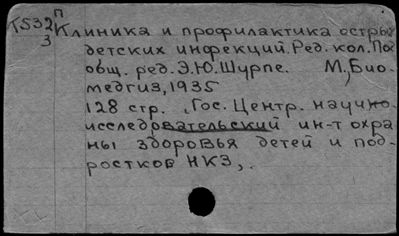 П
К532 Клиника и профилактика остры
3 детских инфекций. Ред. кол. По
общ. ред. Э.Ю. Шурпе. М., Био-
медгиз, 1935
128 стр. , Гос. Центр. научно-
исследовательский ин-т охра
ны здоровья детей и под-
ростков НКЗ,.